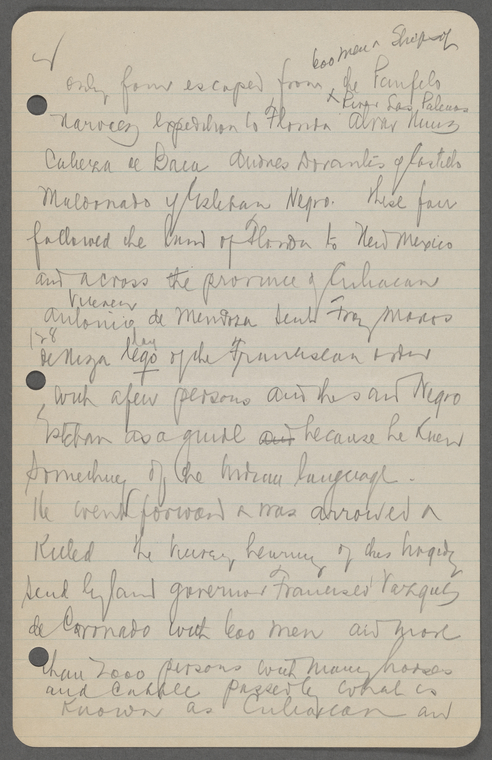 600 men & Ships of
only four escaped from the Panfelo
x River Las Palmas
Narvez Expedition to Florida Alvar Nunz
Cabeza de Baca Andres Dorantes y Castillo
Maldonado y Esteban Negro. These four
followed the land of Florida to New Mexico
and across the province of Culiacan
Viceroy
Antonio de Mendoza sent Fray Marcos
de Niza lego of the Franciscan order
lay
with a few persons and the said Negro
Esteban as a guide and because he knew
something of the Indian language.
He went forward & was arrowed &
Killed the Viceroy hearing of this tragedy
send by land governor Francisco Vazquez
de Coronado with 600 men and more
than 2000 persons with many horses
and cattle passed by what is
known as Culiacan and